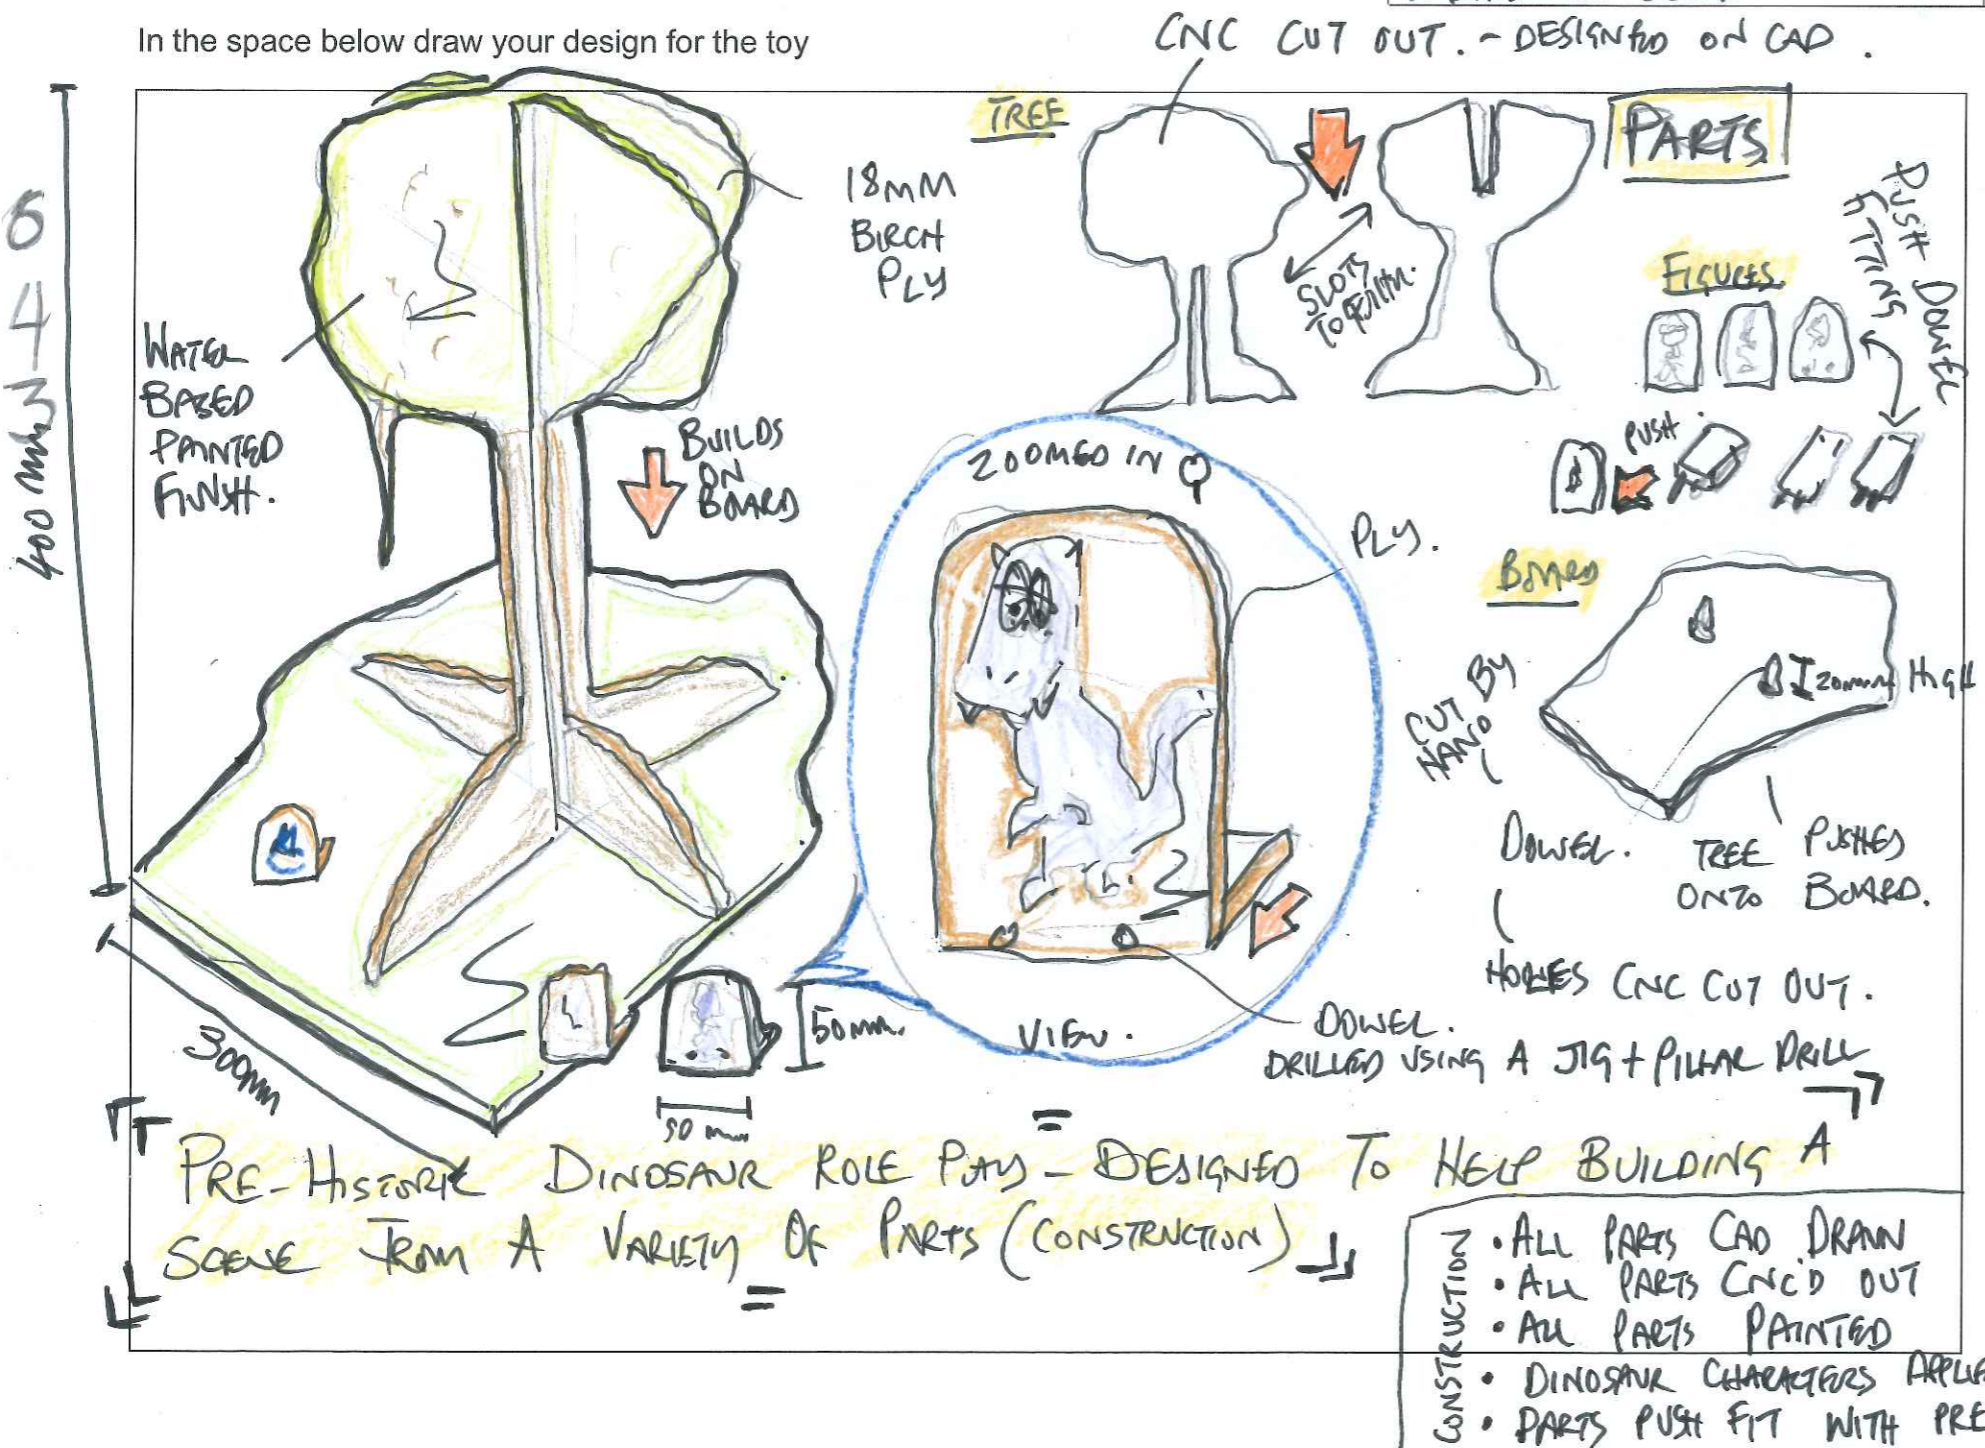 In the space below draw your design for the toy
CNC CUT OUT. - DESIGNED ON CAD.
TREE
PARTS
18MM
BIRCH
PLY
SLOTS
TOGETHER.
FIGURES
PUSH DOWEL
FITTING
PUSH
WATER
BASED
PAINTED
FINISH.
400mm
BUILDS
ON
BOARD
ZOOMED IN
PLY.
BOARD
20mm HIGH
CUT BY
HAND
DOWEL.
TREE PUSHED
ONTO BOARD.
HOLES CNC CUT OUT.
VIEW.
DOWEL.
DRILLED USING A JIG + PILLAR DRILL
50mm.
300mm
50mm
PRE-HISTORIC DINOSAUR ROLE PLAY - DESIGNED TO HELP BUILDING A
SCENE FROM A VARIETY OF PARTS (CONSTRUCTION)
CONSTRUCTION
• ALL PARTS CAD DRAWN
• ALL PARTS CNC'D OUT
• ALL PARTS PAINTED
• DINOSAUR CHARACTERS APPLIE
• PARTS PUSH FIT WITH PRE